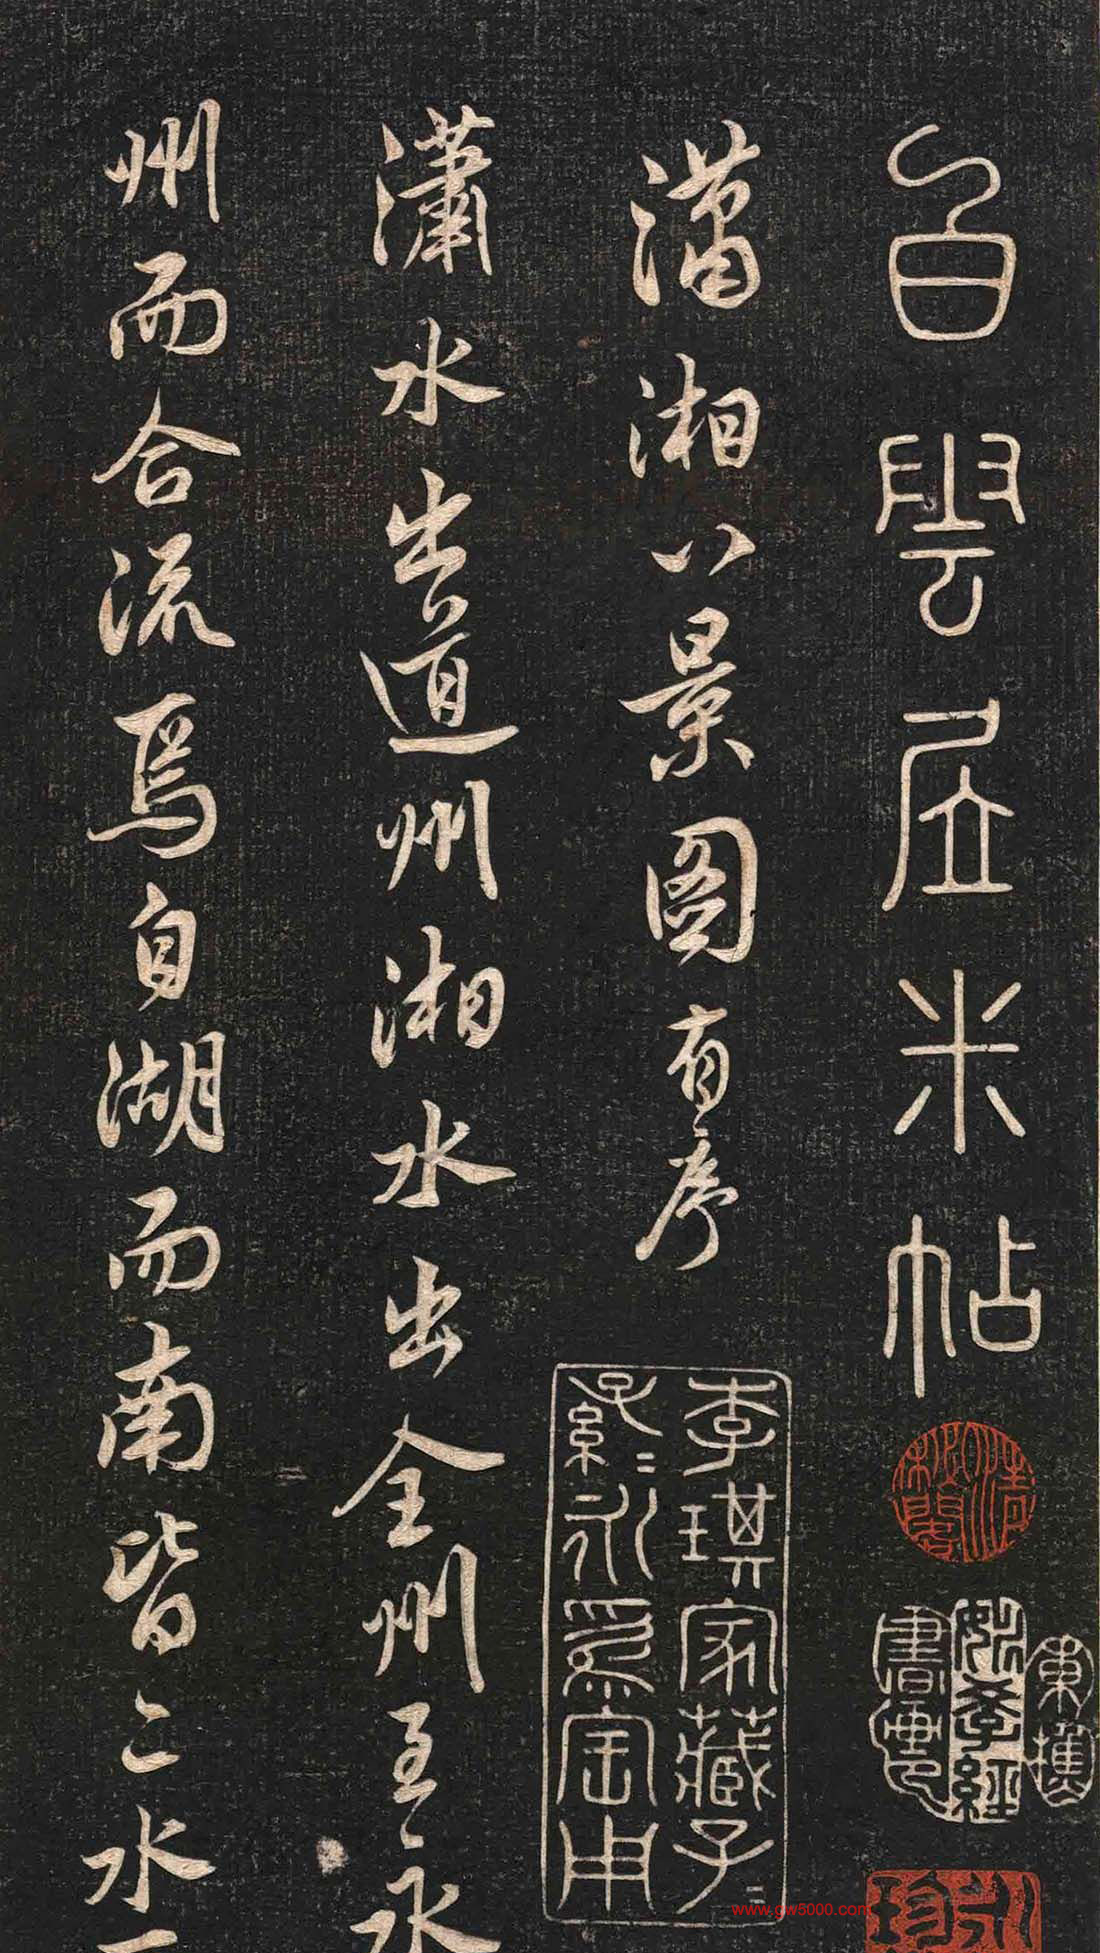 白雲居米帖
瀟湘八景圖有序
瀟水出道州湘水出全州至永
州而合流焉自湖而南皆二水
李琪家藏子
子孫孫永為寶用
東樵
書畫印
www.gw5000.com